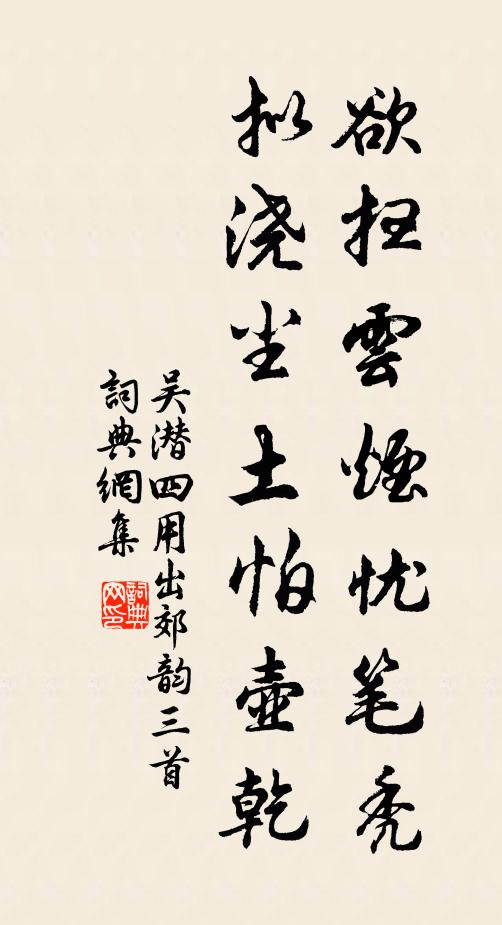 欲扫雲煙忧笔秃
拟浇尘土怕壺乾
吴潜四用出郊韵三首
詞典網集
詞典网印